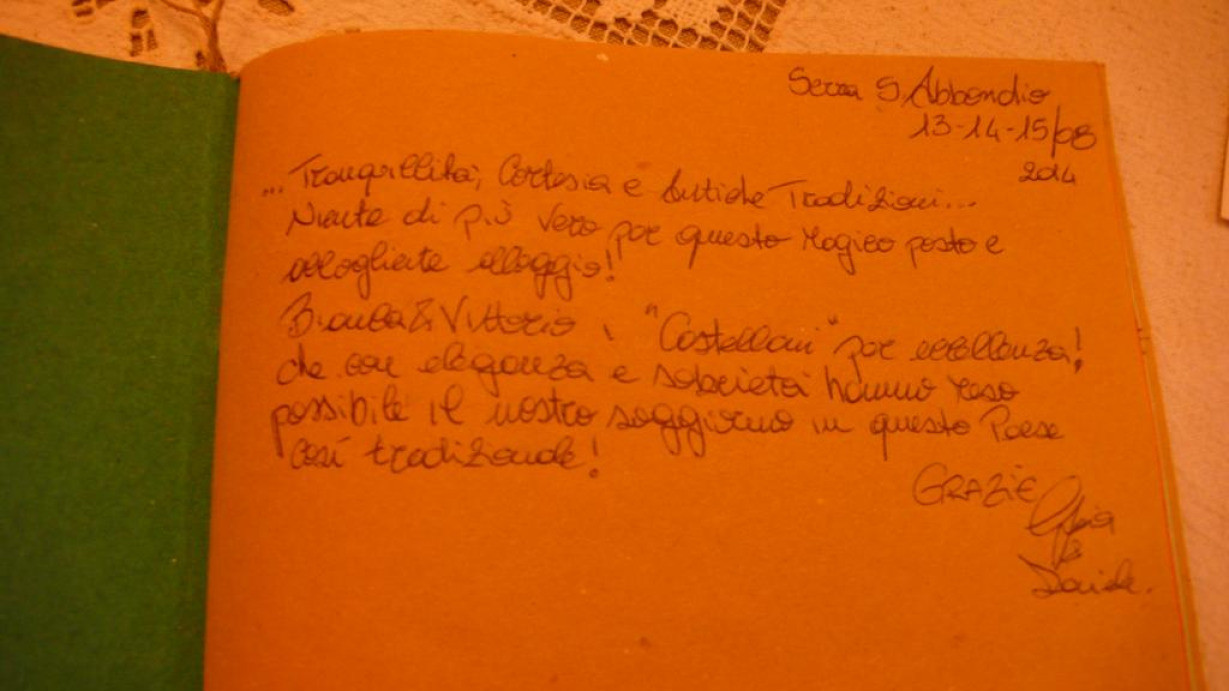 Serra S. Abbondio
13-14-15/08
2014
... Tranquillità, Cortesia e Antiche Tradizioni...
Niente di più vero per questo Magico posto e
accogliente alloggio!
Bianca & Vittorio, i "Castellani" per eccellenza!
che con eleganza e sobrietà hanno reso
possibile il nostro soggiorno in questo Paese
così tradizionale!
GRAZIE
e
Davide.